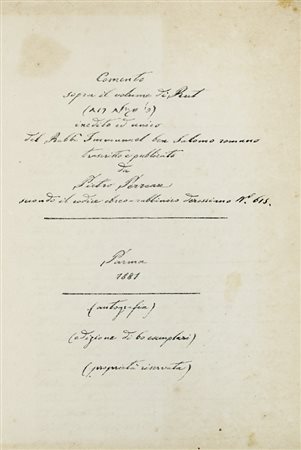 Comento
sopra il volume di Rut
(פי׳ מגלת רות)
inedito ed unico
del Rabbi Immanuel ben Salomo romano
trascritto e publicato
da
Pietro Perreau
secondo il codice ebreo-rabbinico derossiano Nº 615.
Parma
1881
(autografia)
(edizione di 60 esemplari)
(proprietà riservata)